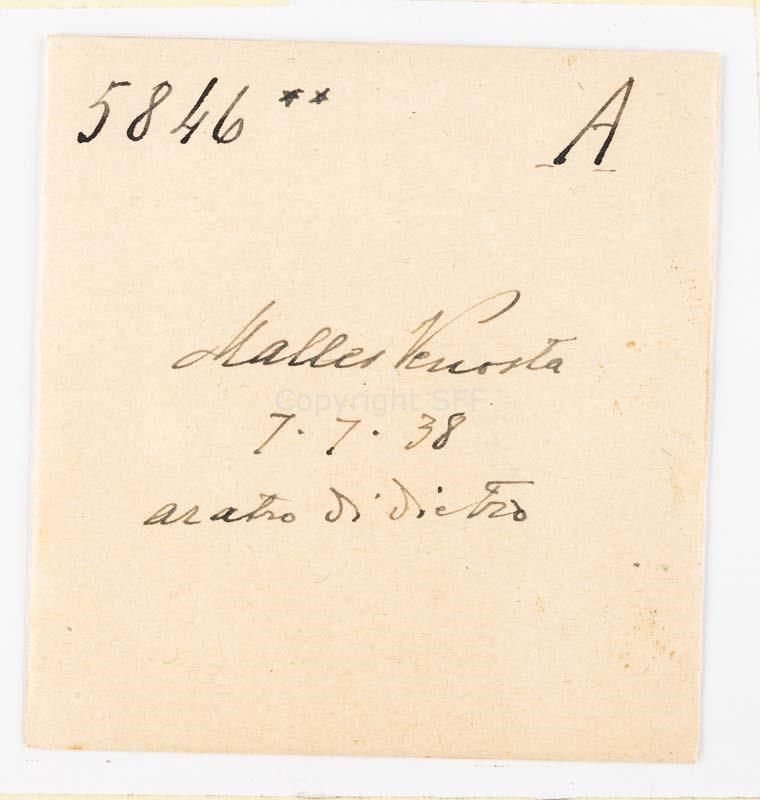 5846 ** A
Malles Venosta
Copyright SFF
7.7.38
aratro di dietro